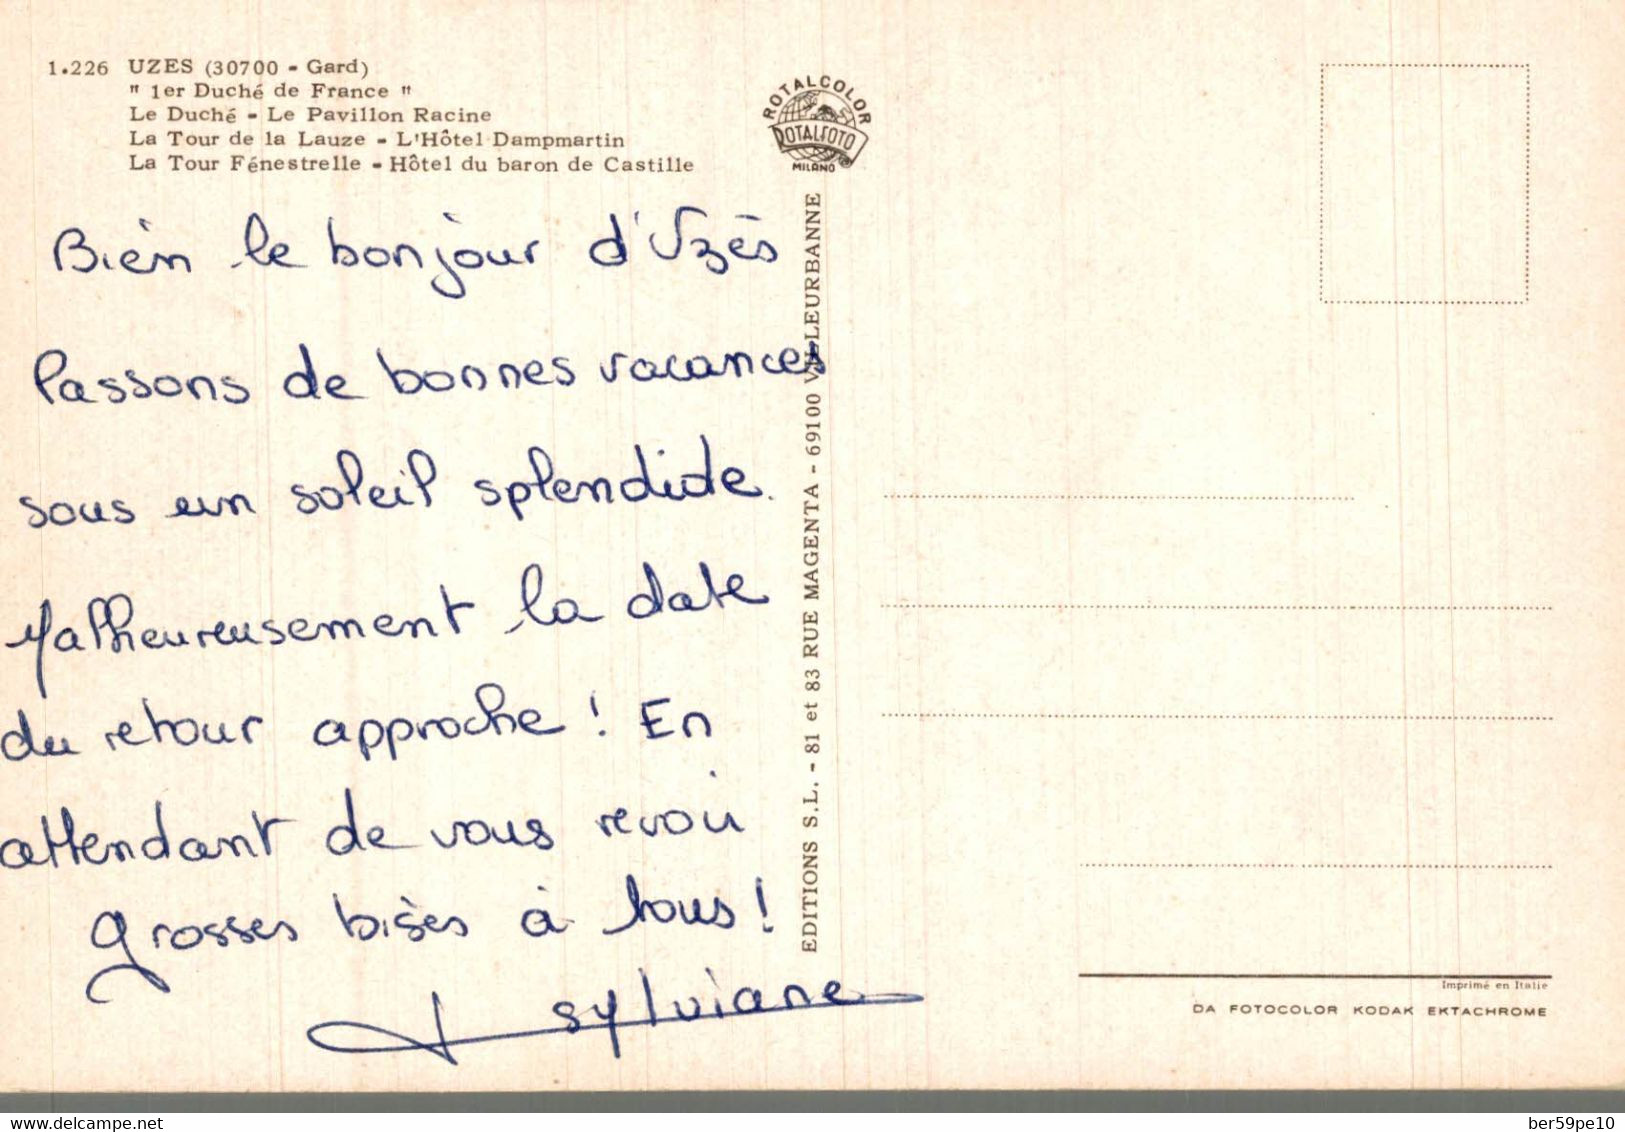 1.226 UZES (30700 - Gard)
" 1er Duché de France "
Le Duché - Le Pavillon Racine
La Tour de la Lauze - L'Hôtel Dampmartin
La Tour Fénestrelle - Hôtel du baron de Castille
ROTALCOLOR
ROTALFOTO
MILANO
Bien le bonjour d'Uzès
Passons de bonnes vacances
sous un soleil splendide.
Malheureusement la date
du retour approche ! En
attendant de vous revoir
grosses bises à tous !
sylviane
EDITIONS S.L. - 81 et 83 RUE MAGENTA - 69100 VILLEURBANNE
Imprimé en Italie
DA FOTOCOLOR KODAK EKTACHROME
Delcampe.net
ber59pe10